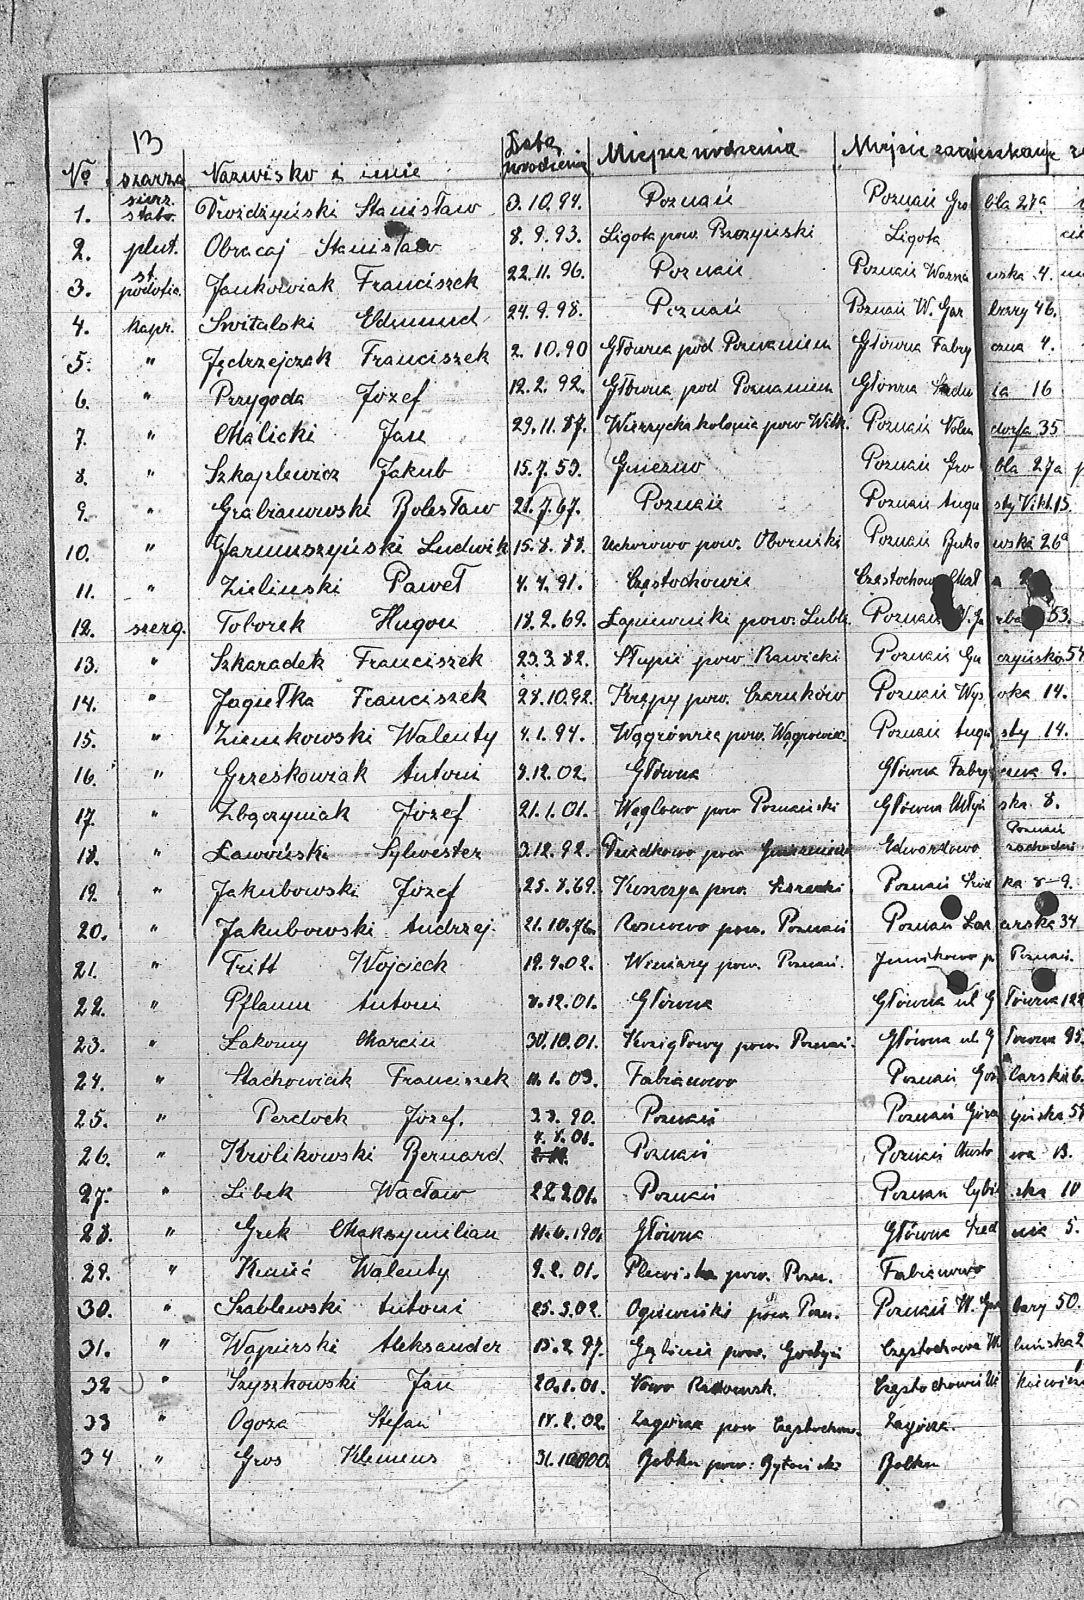 13
№ szarża Nazwisko i imię Data urodzenia Miejsce urodzenia Miejsce zamieszkania
1. sierż. sztab. Drożdżyński Stanisław 3.10.94. Poznań Poznań Grobla 27a
2. plut. Obracaj Stanisław 8.9.93. Ligota pow. Ligota
3. st. podofic. Jankowiak Franciszek 22.11.96. Poznań Poznań 4.
4. kapr. Świtalski Edmund 24.9.98. Poznań Poznań W. Garbary 46.
5. " Jędrzejczak Franciszek 2.10.90 Główna pod Poznaniem Główna Fabryczna 4.
6. " Przygoda Józef 12.2.92. Główna pod Poznaniem Główna 16
7. " Malicki Jan 29.11.87. kolonja pow. Witk. Poznań 35
8. " Szkaplewicz Jakub 15.7.59. Gniezno Poznań Grobla 27a
9. " Grabianowski Bolesław 21.7.67. Poznań Poznań Augusty Vikt. 15.
10. " Jarmuszyński Ludwik 15.8.88. Uchorowo pow. Oborniki Poznań Bukowska 26a
11. " Zieliński Paweł 4.4.91. Częstochowa
12. szereg. Toborek Hugon 18.2.69. pow. Lubli. Poznań W. Garbary 53.
13. " Szkaradek Franciszek 23.3.82. Słupia pow. Rawicki Poznań
14. " Jagiełka Franciszek 28.10.92. Krępy pow. Czarnków Poznań Wysoka 14.
15. " Ziemkowski Walenty 4.1.94. Wągrównia pow. Wągrowiec. Poznań Augusty 14.
16. " Grześkowiak Antoni 8.12.02. Główna Główna Fabryczna 9.
17. " Zbączyniak Józef 21.1.01. Węglowo pow. Poznański Główna Młyńska 8.
18. " Ławiński Sylwester 3.12.92. pow. Edwardowo Poznań zachodni
19. " Jakubowski Józef 25.8.69. pow. Poznań 8-9.
20. " Jakubowski Andrzej. 21.10.76. Rosnowo pow. Poznań Poznań 34
21. " Tritt Wojciech 12.4.02. Winiary pow. Poznań. Junikowo p. Poznań.
22. " Pflaum Antoni 8.12.01. Główna Główna ul Główna 122
23. " Łakomy Marcin 30.10.01. Koziegłowy pow. Poznań. Główna ul Główna 95.
24. " Stachowiak Franciszek 11.1.03. Fabianowo Poznań 6.
25. " Perdoch Józef. 3.3.90. Poznań Poznań
26. " Królikowski Bernard 4.8.01. Poznań Poznań 13.
27. " Libek Wacław 28.2.01. Poznań Poznań Rybińska 10
28. " Grek Maksymilian 11.6.190. Główna Główna Średnia 5.
29. " Kunić Walenty 9.2.01. Plewiska pow. Pozn. Fabianowo
30. " Szablewski Antoni 25.5.02. pow. Pozn. Poznań W. Garbary 50.
31. " Wąpierski Aleksander 15.2.97. pow. Gostyń Częstochowa
32 " Szyszkowski Jan 20.1.01. Nowo Radomsk. Częstochowa
33 " Ogoza Stefan 18.2.02. Zagórze pow. Częstochow. Zagórze.
34 " Gros Klemens Bobken pow.: Bytomski Bobken